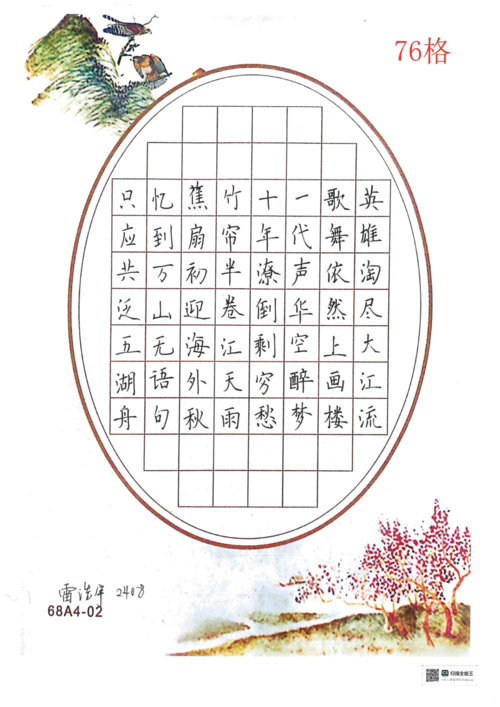 76格
英雄淘尽大江流
歌舞依然上画楼
一代声华空醉梦
十年潦倒剩穷愁
竹帘半卷江天雨
蕉扇初迎海外秋
忆到万山无语句
只应共泛五湖舟
雷浩 2408
68A4-02
扫描全能王